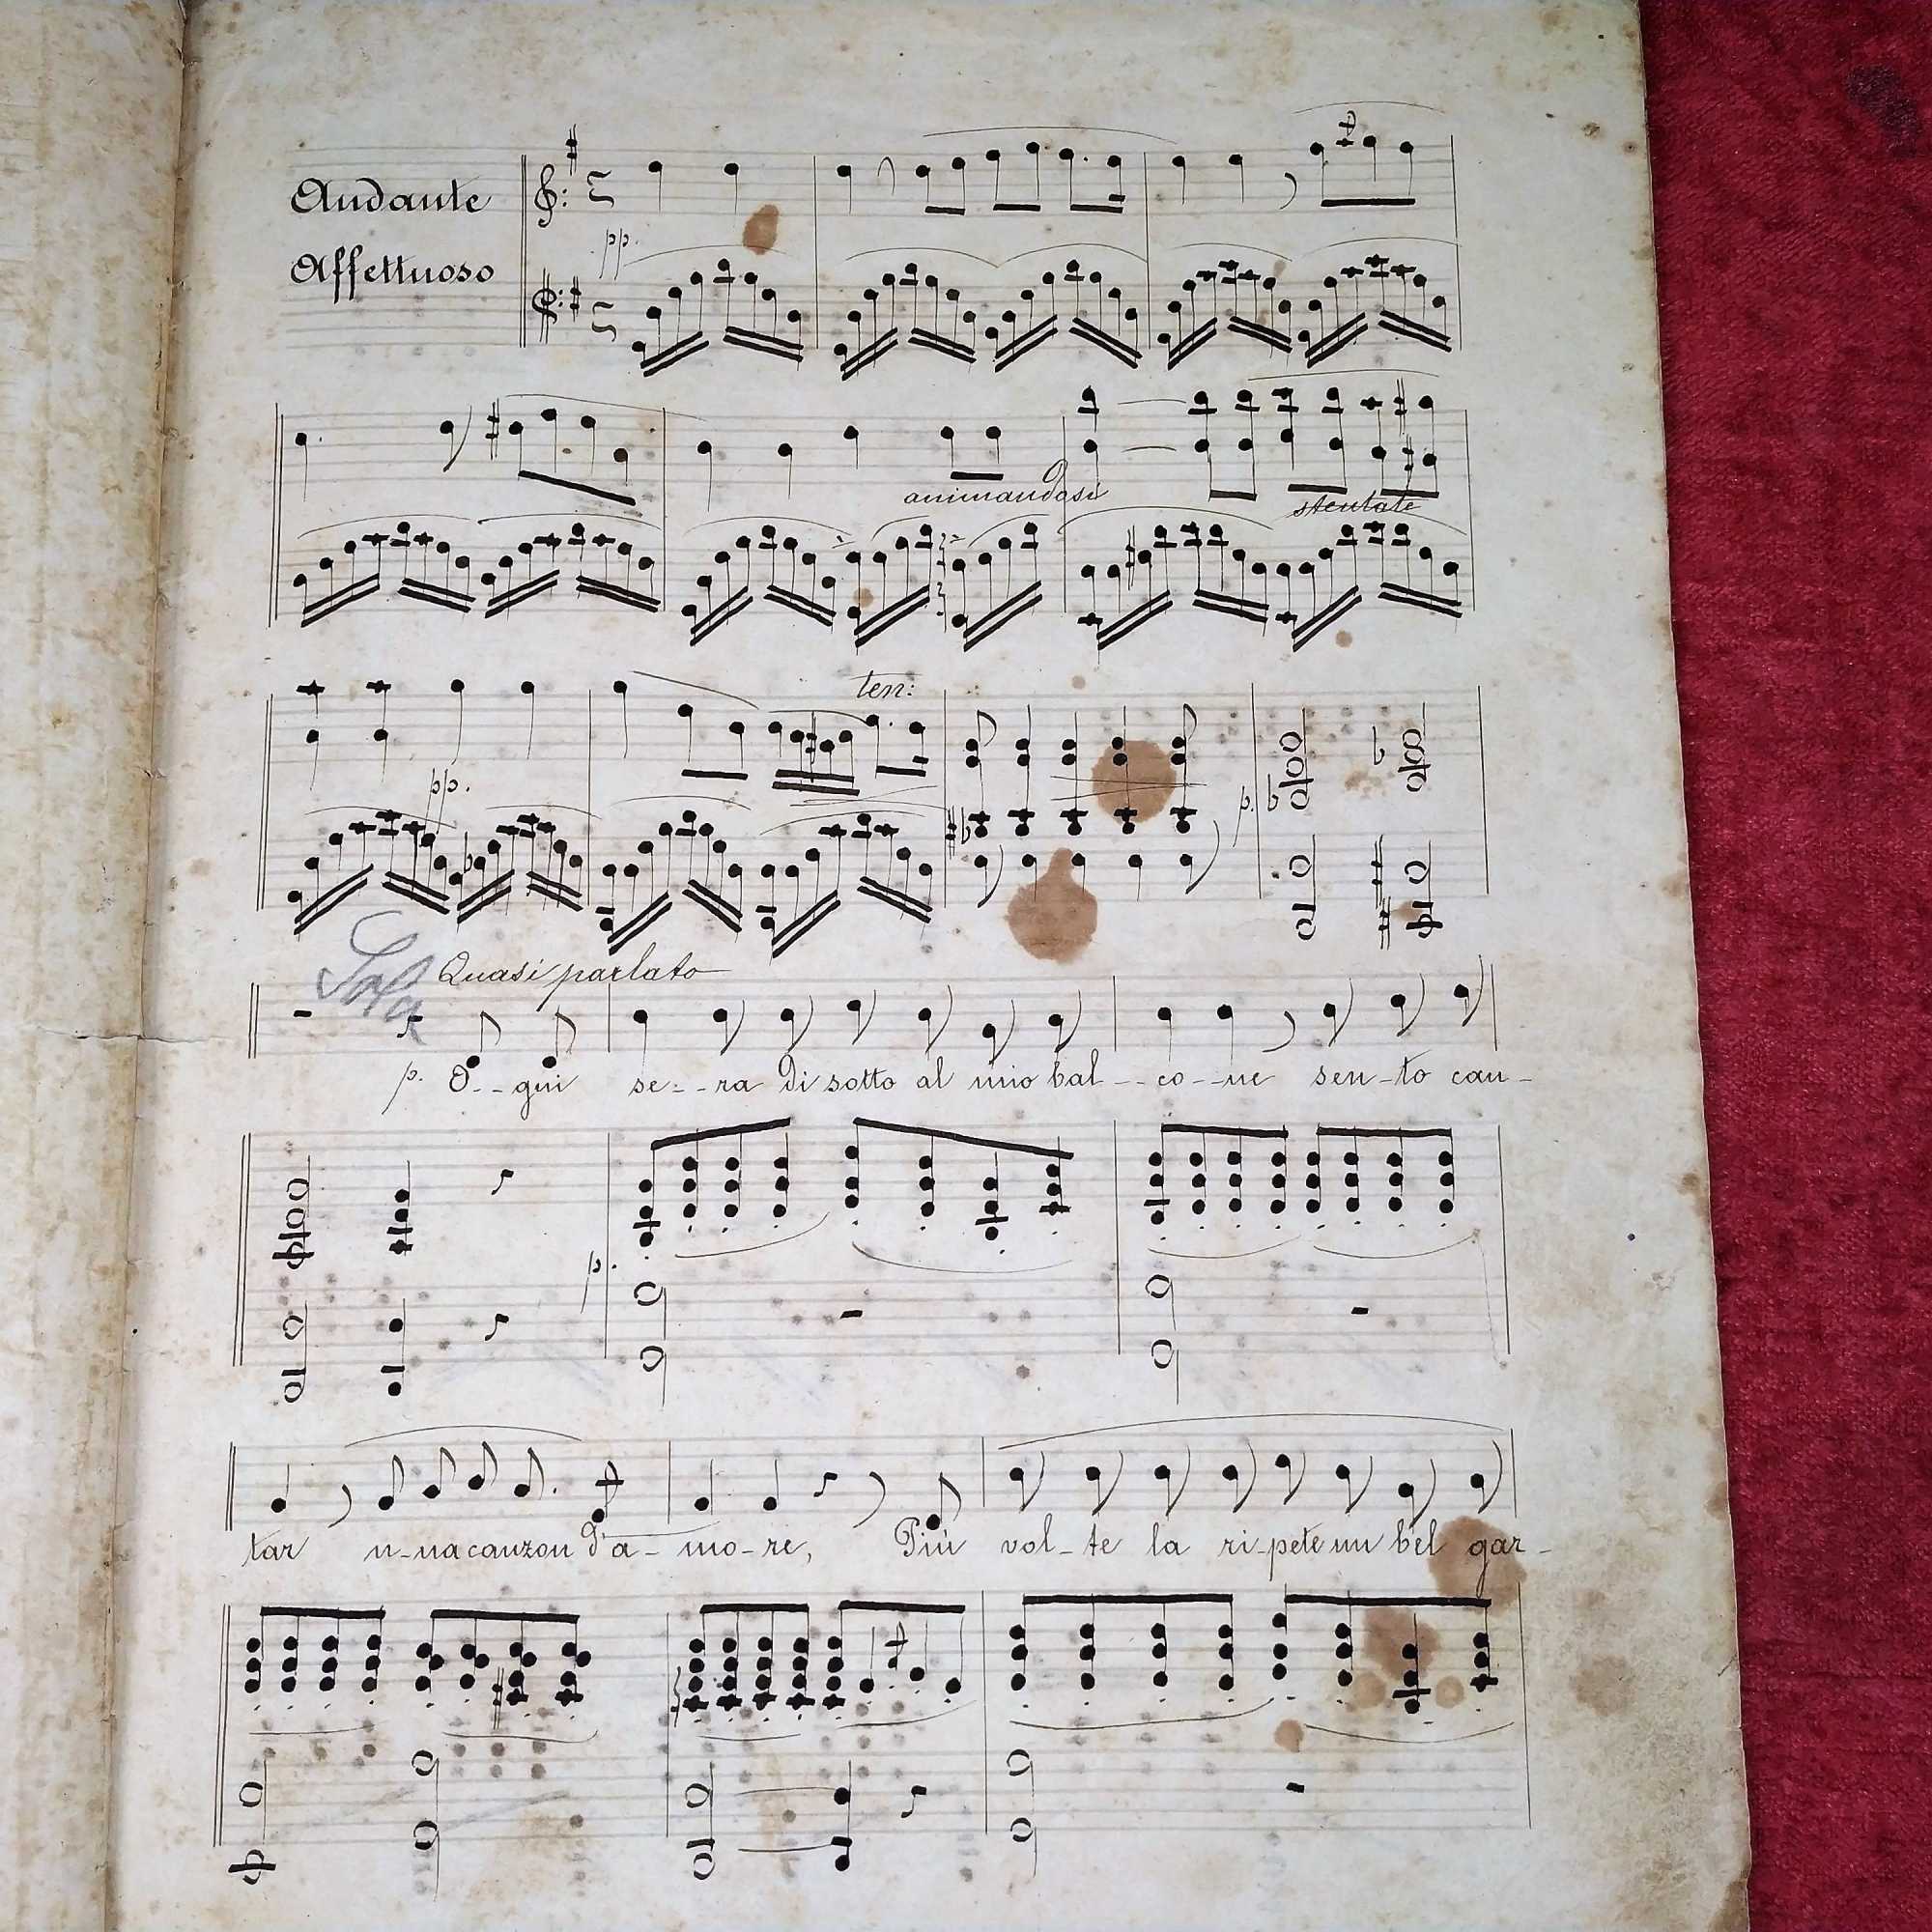 Andante
Affettuoso
pp.
animandosi
stentate
ten:
pp.
p.
Quasi parlato
p. O--gni se--ra di sotto al mio bal--co--ne sen-to can-
p.
tar u-na canzon d'a-mo-re, Più vol-te la ri-pete un bel gar-